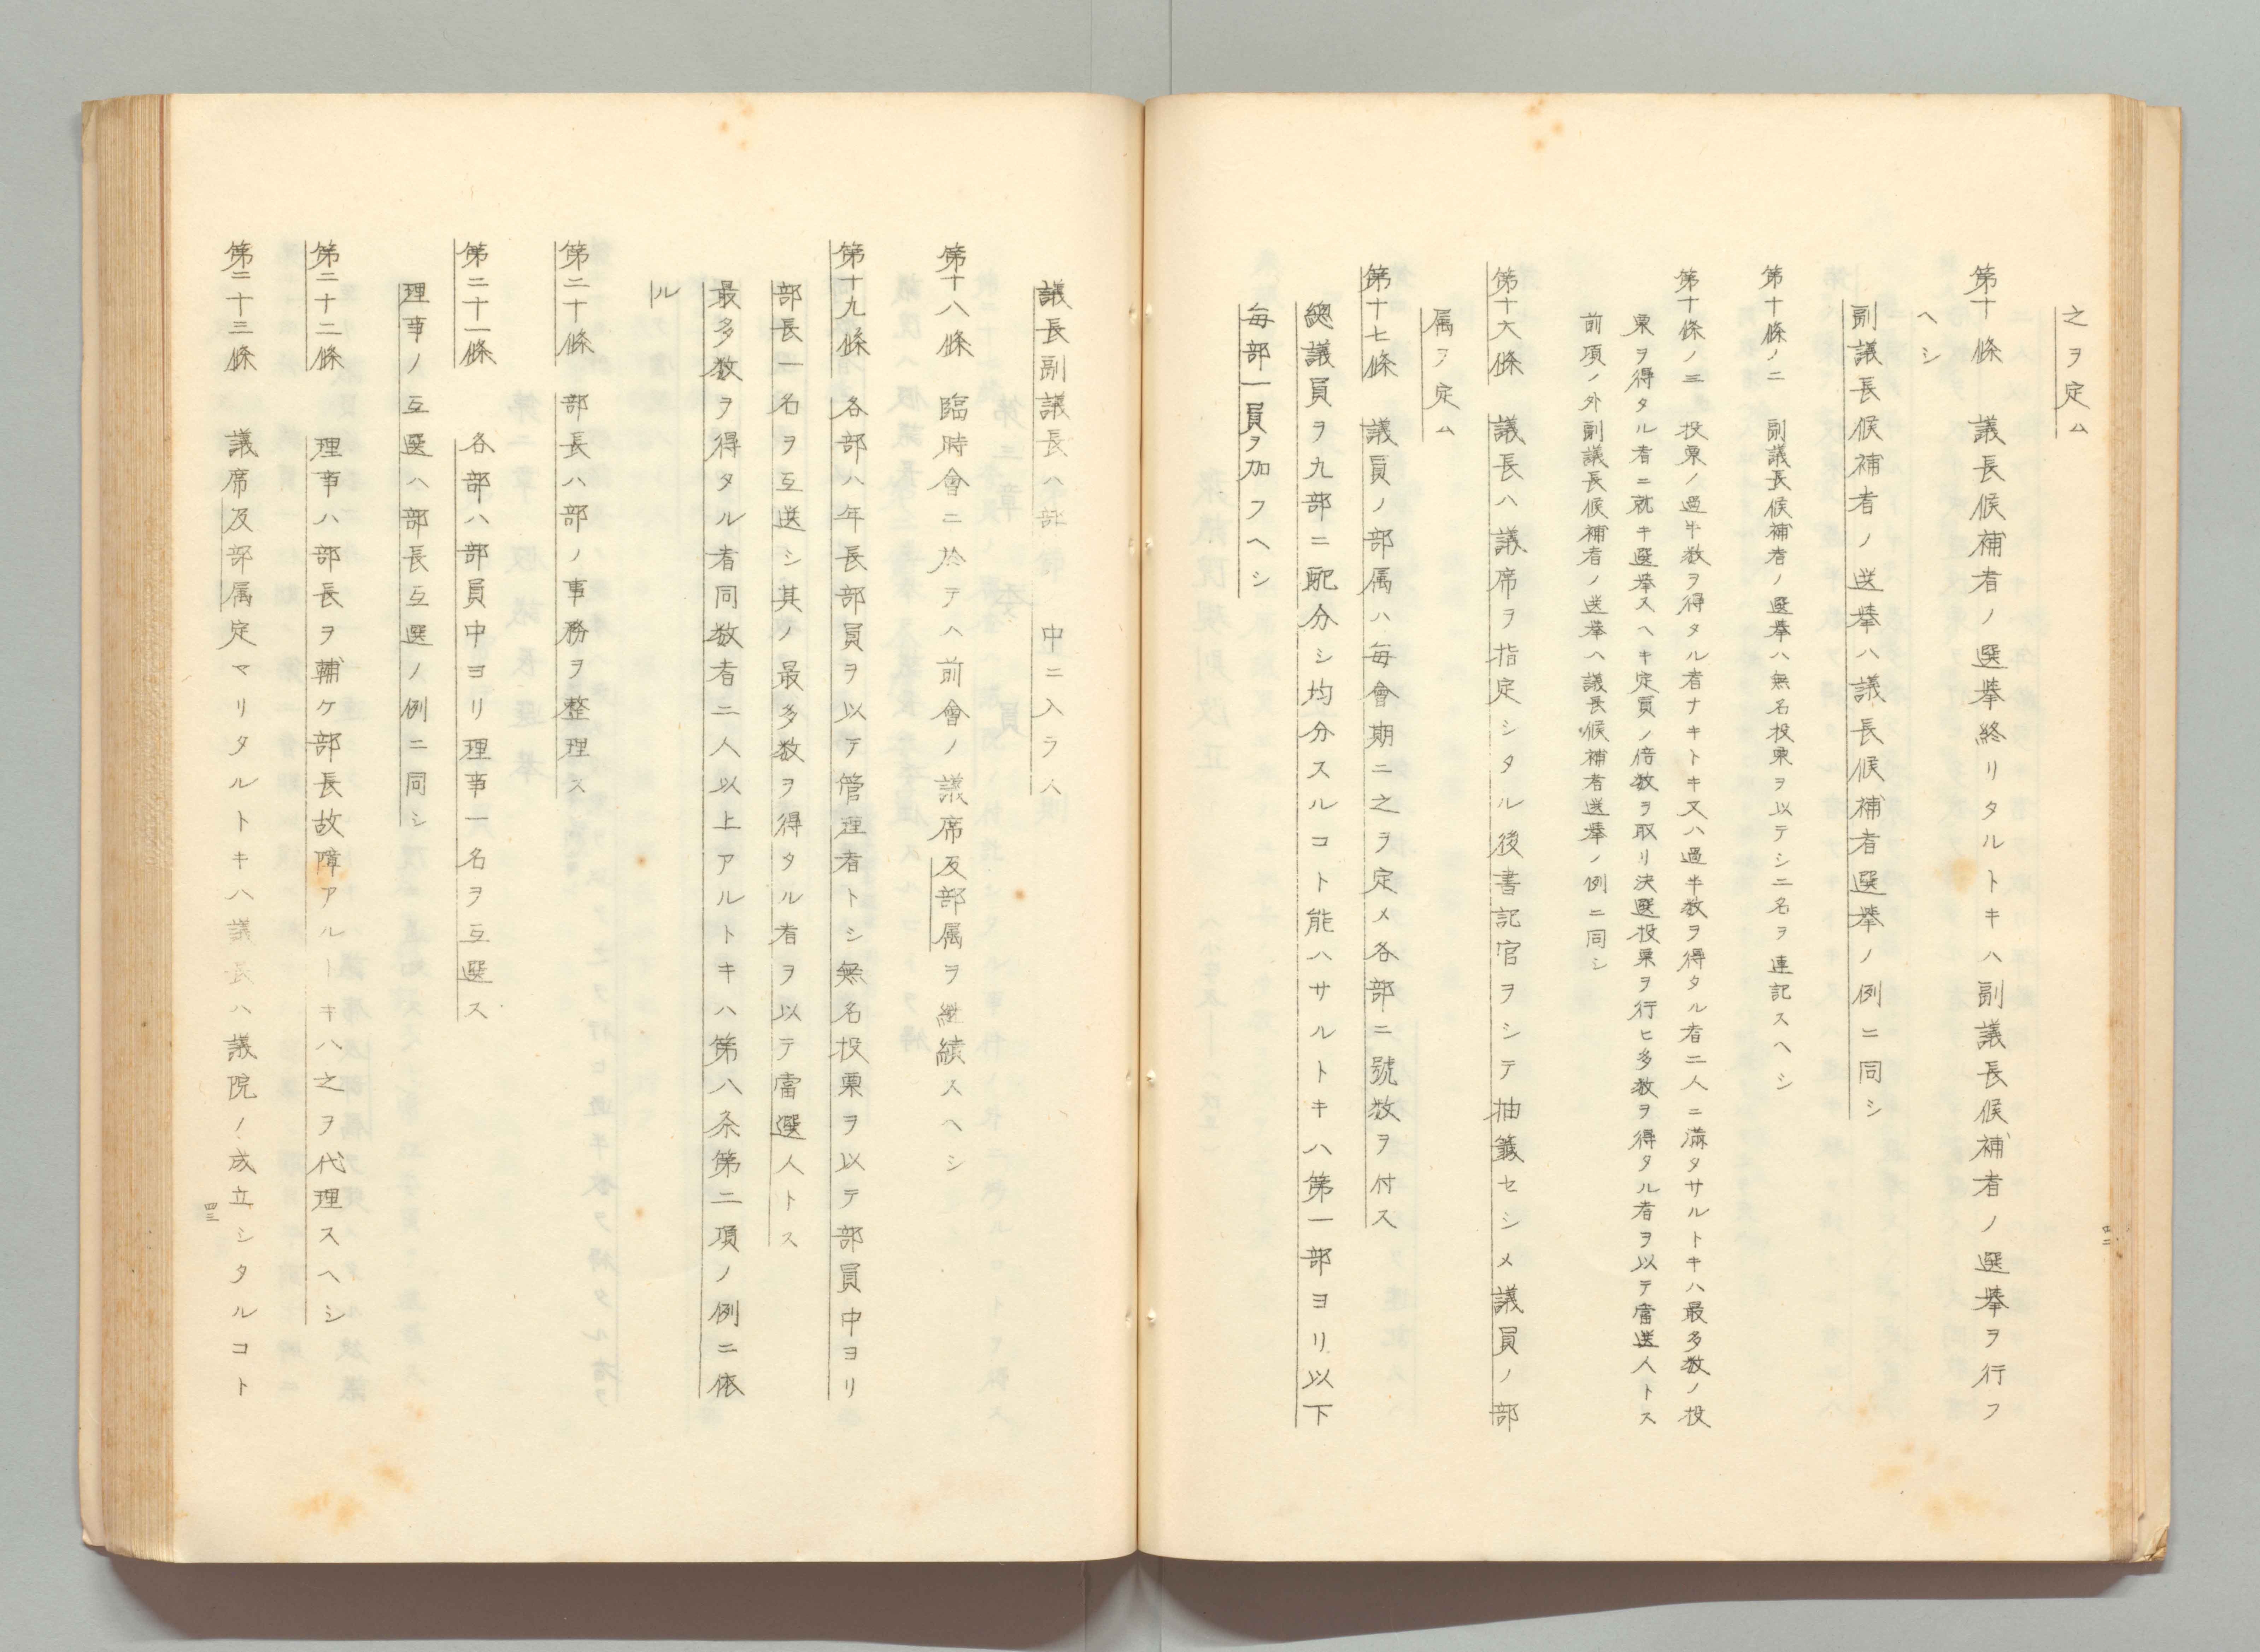 之ヲ定ム
第十條 議長候補者ノ選挙終リタルトキハ副議長候補者ノ選挙ヲ行フ
ヘシ
副議長候補者ノ送挙ハ議長候補者選挙ノ例ニ同シ
第十條ノ二 副議長候補者ノ選挙ハ無名投票ヲ以テシ二名ヲ連記スヘシ
第十條ノ三 投票ノ過半数ヲ得タル者ナキトキ又ハ過半数ヲ得タル者二人ニ満タサルトキハ最多数ノ投
票ヲ得タル者ニ就キ選挙スヘキ定員ノ倍数ヲ取リ決選投票ヲ行ヒ多数ヲ得タル者ヲ以テ當送人トス
前項ノ外副議長候補者ノ送挙ヘ議長候補者送挙ノ例ニ同シ
第十六條 議長ハ議席ヲ指定シタル後書記官ヲシテ抽籤セシメ議員ノ部
属ヲ定ム
第十七條 議員ノ部属ハ毎會期ニ之ヲ定メ各部ニ號数ヲ付ス
總議員ヲ九部ニ配分シ均分スルコト能ハサルトキハ第一部ヨリ以下
毎部一員ヲ加フヘシ
四二
議長副議長ハ部 中ニ入ラス
第十八條 臨時會ニ於テヘ前會ノ議席及部属ヲ継續スヘシ
第十九條 各部ハ年長部員ヲ以テ管理者トシ無名投票ヲ以テ部員中ヨリ
部長一名ヲ互送シ其ノ最多数ヲ得タル者ヲ以テ當選人トス
最多数ヲ得タル者同数者二人以上アルトキハ第八条第二項ノ例ニ依
ル
第二十條 部長ハ部ノ事務ヲ整理ス
第二十一條 各部ハ部員中ヨリ理事一名ヲ互選ス
理事ノ互選ハ部長互選ノ例ニ同シ
第二十二條 理事ハ部長ヲ輔ケ部長故障アルーキハ之ヲ代理スヘシ
第二十三條 議席及部属定マリタルトキハ議長ハ議院ノ成立シタルコト
四三